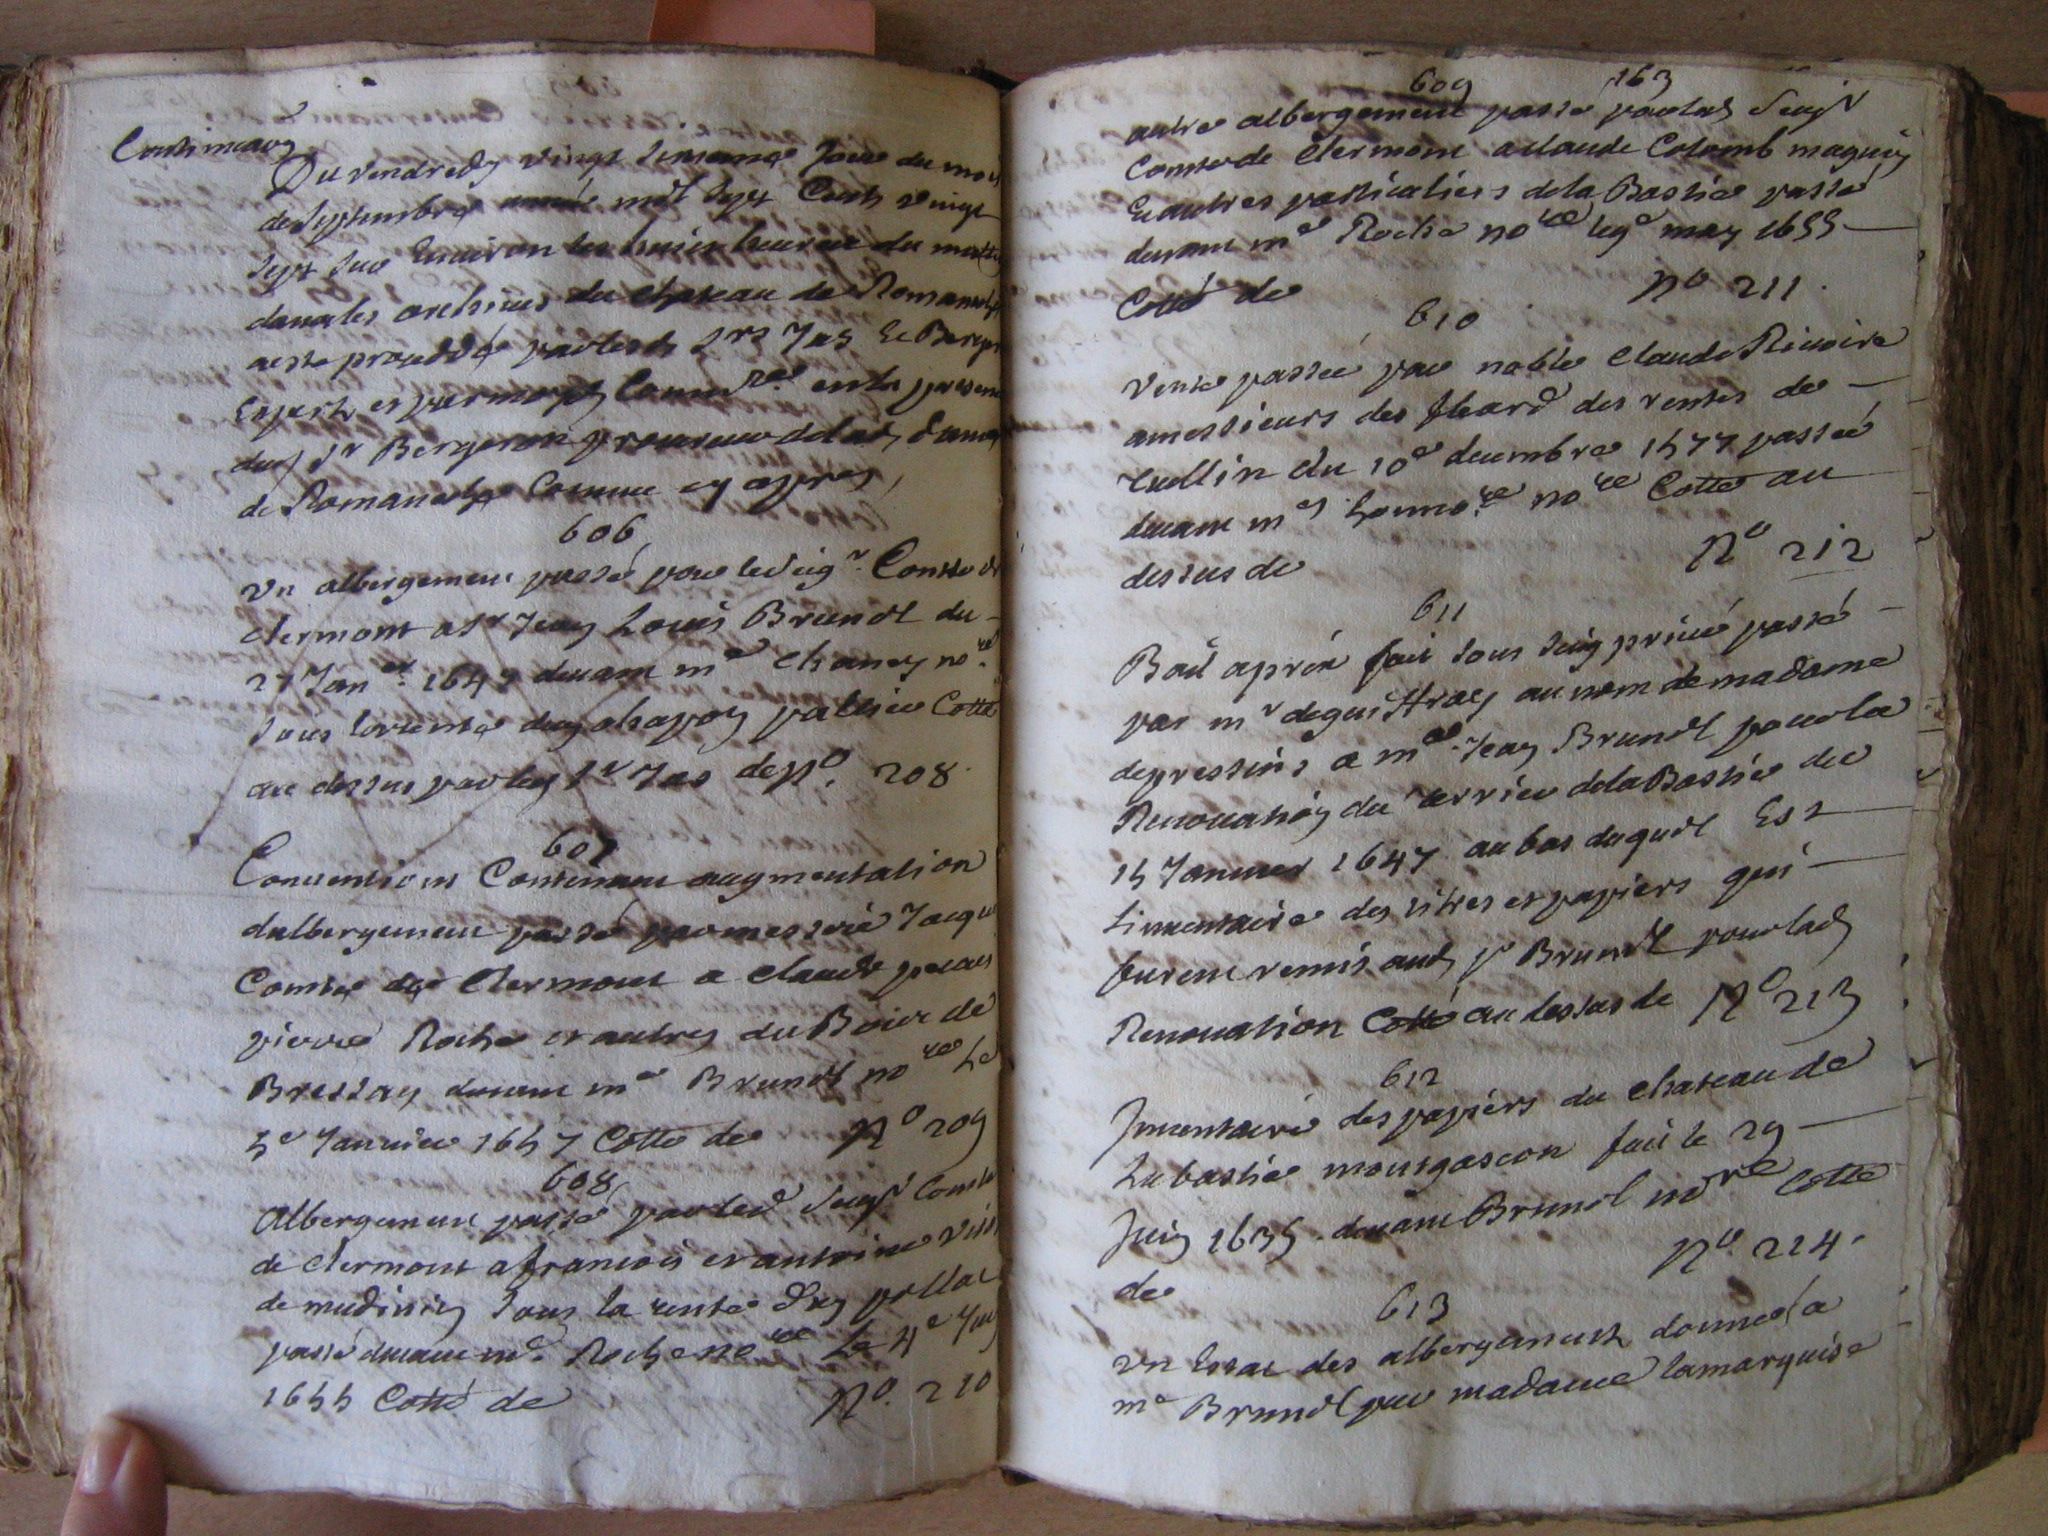 Continuaon
Du vendredy vingt sixieme jour du mois
de septembre année mil sept cents vingt
sept sur environ les huit heures du mattin
dans les archives du chateau de Romanesche
a este procedde par lesds srs Jas et Berger
Experts et par moy comm.re en la presence
dud sr Bergeron procureur de lad dame
de Romanesche comme cy apres
606
un albergement passé par led seigr. Comte de
clermont a sr Jean Louis Brunet du
27 Janer. 1647 devant me Chaney nore
sous la rente duy chapon pallieu Cotté
au dessus par led sr Jas de No. 208
607
Conventions Contenant augmentation
dalbergement passé par messire Jacque
Comte de Clermont a claude
pierre Roche et autres du Bois de
Bressay devant me Brunet nore le
5e Janvier 1657 Cotté de No 209
608
Albergement passé par led seigr Comte
de Clermont a francois et antoine
de sous la rente
passé devant me. Roche nore le 4e
1655 Cotté de No. 210
609 163
autre albergement passé par led seigr
Comte de Clermont a claude Colomb
Et autres particuliers de la Bastie passé
devant me Roche nore le 9e may 1655
Cotté de No 211.
610
Vente passée par noble Claude Rivoire
a messieurs des fleard des rentes de
tullin du 10e decembre 1577 passée
devant me nore Cotté au
dessus de No 212
611
Bail a prix fait sous seing privé passé
par mr au nom de madame
de pressins a me Jean Brunet pour la
Renovation du terrier de la Bastie du
15 Janvier 1647 au bas duquel Est
linventaire des titres et papiers qui
furent remis aud sr Brunet pour lad
Renovation Cotté au dessus de No 213
612
Inventaire des papiers du chateau de
La bastie montgascon fait le 29
Juin 1635. devant Brunel nore Cotté
de No. 214.
613
un Estat des albergements donné a
me Brunet par madame la marquise